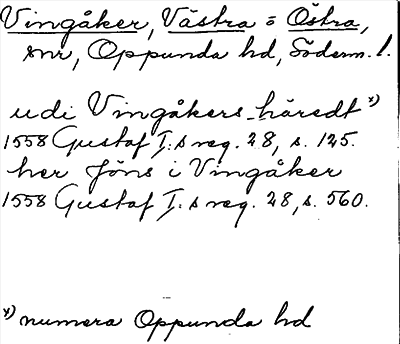 Vingåker, Västra o Östra,
snr, Oppunda hd, Söderm. l.
udi Vingåkers häredt x)
1558 Gustaf I:s reg. 28, s. 125.
her Jöns i Vingåker
1558 Gustaf I:s reg. 28, s. 560.
x) numera Oppunda hd